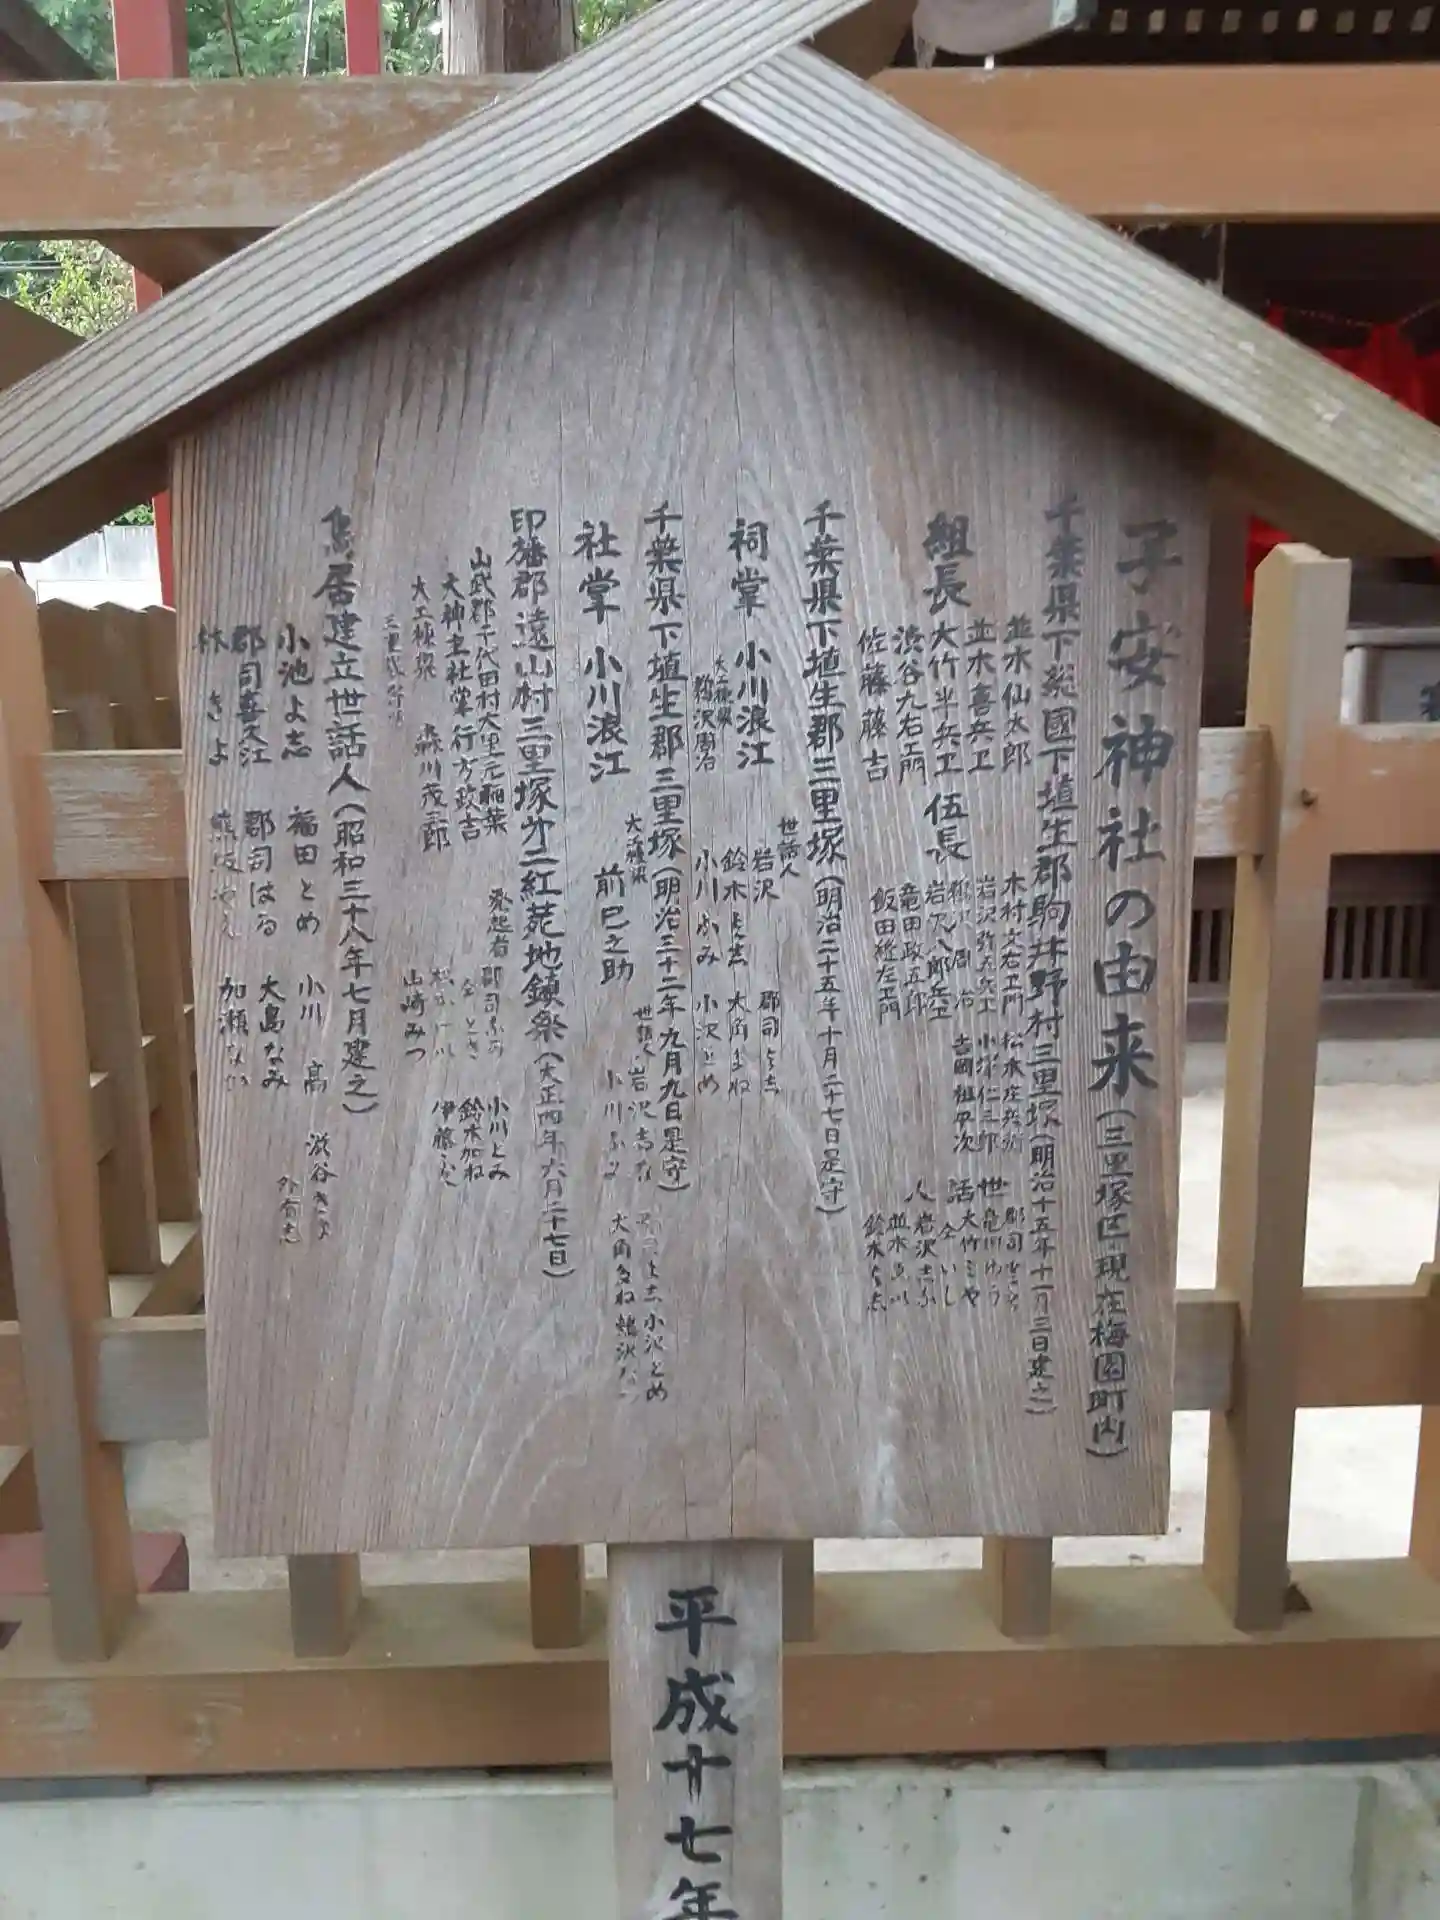 子安神社の由来(三里塚区 現在梅園町内)
千葉県下総國下埴生郡駒井野村三里塚(明治十五年十一月三日建之)
組長
並木仙太郎
並木喜兵卫
大竹半兵卫
渋谷九右エ門
佐藤藤吉
伍長
木村文右エ門
岩沢弥五兵エ
岩沢八郎兵エ
竜田政五郎
飯田継左エ門
松本庄兵衛
小塚仁三郎
吉岡祖平次
世話人
郡司
亀川ゆう
大竹ミや
仝いし
岩沢
並木
鈴木よ志
千葉県下埴生郡三里塚(明治二十五年十月二十七日是守)
祠掌 小川浪江
大工棟梁 鵜沢周治
世話人
岩沢
鈴木よ志
小川ふみ
郡司よ志
大角まね
小沢とめ
千葉県下埴生郡三里塚(明治三十二年九月九日是守)
社掌 小川浪江
大工棟梁 前巳之助
世話人 岩沢
小川ふみ
よ志 小沢とめ
大角まね 鵜沢
印旛郡遠山村三里塚才二紅苑地鎮祭(大正四年六月二十七日)
山武郡千代田村大里元稲葉
大神主社掌行方政吉
大工棟梁 森川茂三郎
発起者 郡司
仝とき
山崎みつ
小川とみ
鈴木加ね
伊藤
鳥居建立世話人(昭和三十八年七月建之)
小池よ志 福田とめ 小川高 渋谷きよ
郡司喜久江 郡司はる 大島なみ 外有志
林きよ 加瀬なか
平成十七年